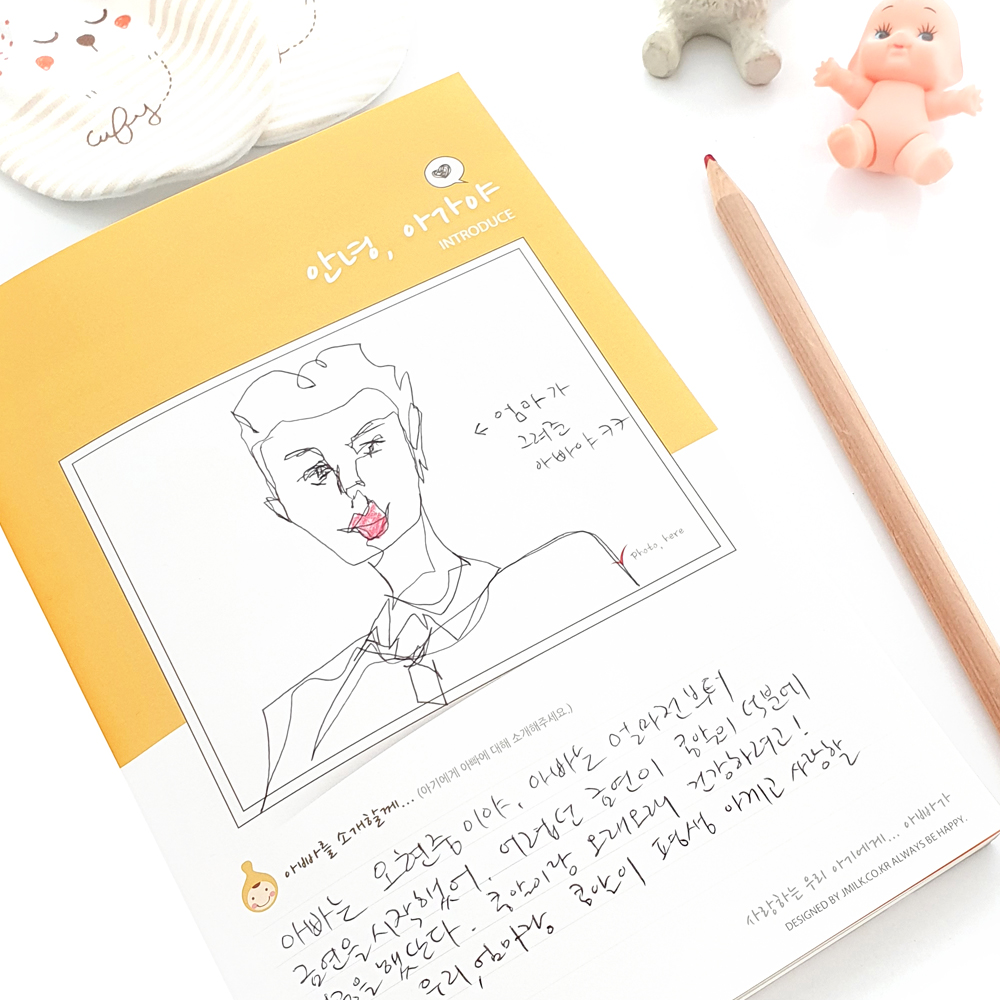 cufry
안녕, 아가야
INTRODUCE
← 엄마가
그려준
아빠야 ㅋㅋ
photo. here
아빠를 소개할께... (아기에게 아빠에 대해 소개해주세요.)
아빠는 오현중 이야, 아빠는 얼마전부터
금연을 시작했어. 어렵던 금연이 콩알의 덕분에
을 했단다. 콩알이랑 오래오래 건강하려고!
우리, 엄마랑 콩알이 평생 아끼고 사랑할
사랑하는 우리 아기에게... 아빠가
DESIGNED BY JMILK.CO.KR ALWAYS BE HAPPY.